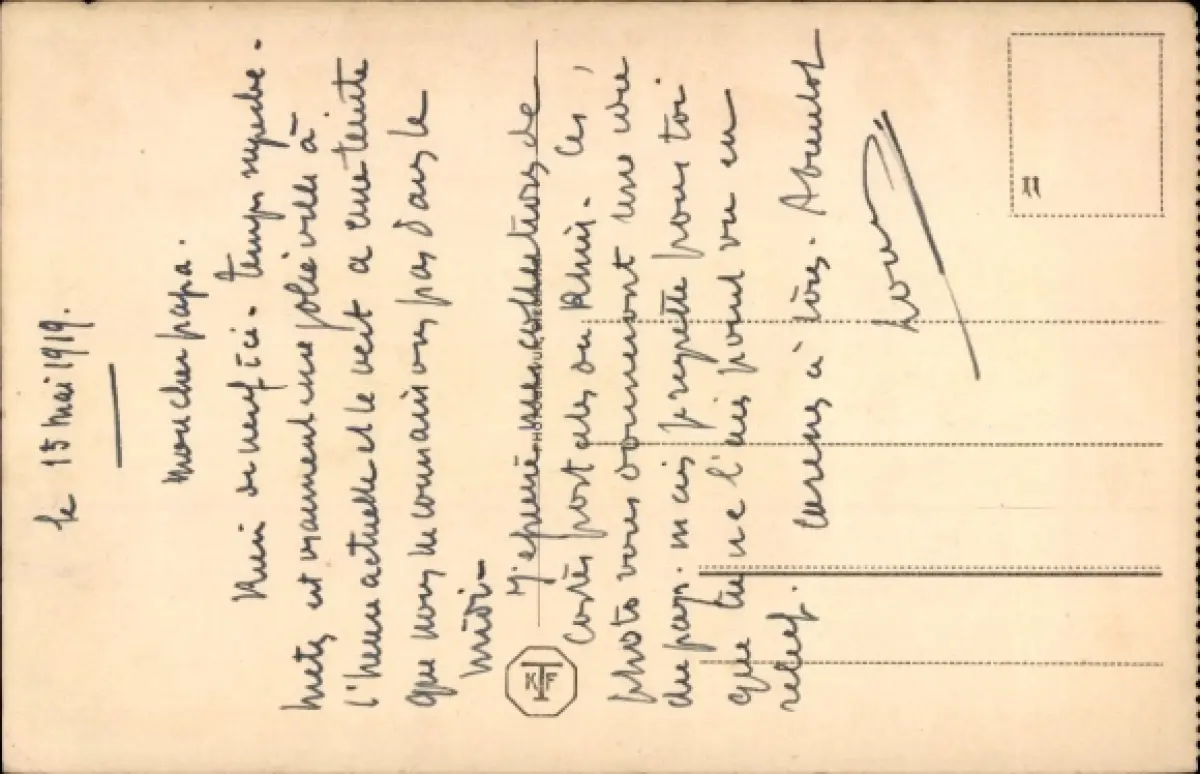 le 15 mai 1919.
Mon cher papa.
Rien de neuf ici. temps superbe.
Metz est vraiment une jolie ville à
l'heure actuelle et le vert a une teinte
que nous ne connaissons pas dans le
midi.
J'épuise mes collections de
cartes postales du Rhin. Ces
photos vous donneront une vue
du pays. mais je regrette pour toi
que tu ne l'aies point vu en
relief.
Caresses à tous.
KTF